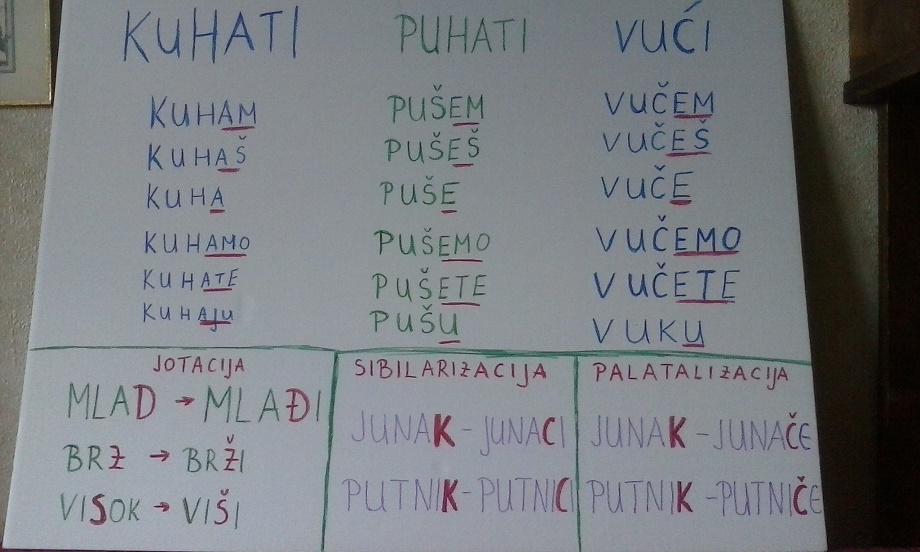 KUHATI PUHATI VUĆI
KUHAM PUŠEM VUČEM
KUHAŠ PUŠEŠ VUČEŠ
KUHA PUŠE VUČE
KUHAMO PUŠEMO VUČEMO
KUHATE PUŠETE VUČETE
KUHAJU PUŠU VUKU
JOTACIJA
MLAD → MLAĐI
BRZ → BRŽI
VISOK → VIŠI
SIBILARIZACIJA
JUNAK - JUNACI
PUTNIK - PUTNICI
PALATALIZACIJA
JUNAK - JUNAČE
PUTNIK - PUTNIČE